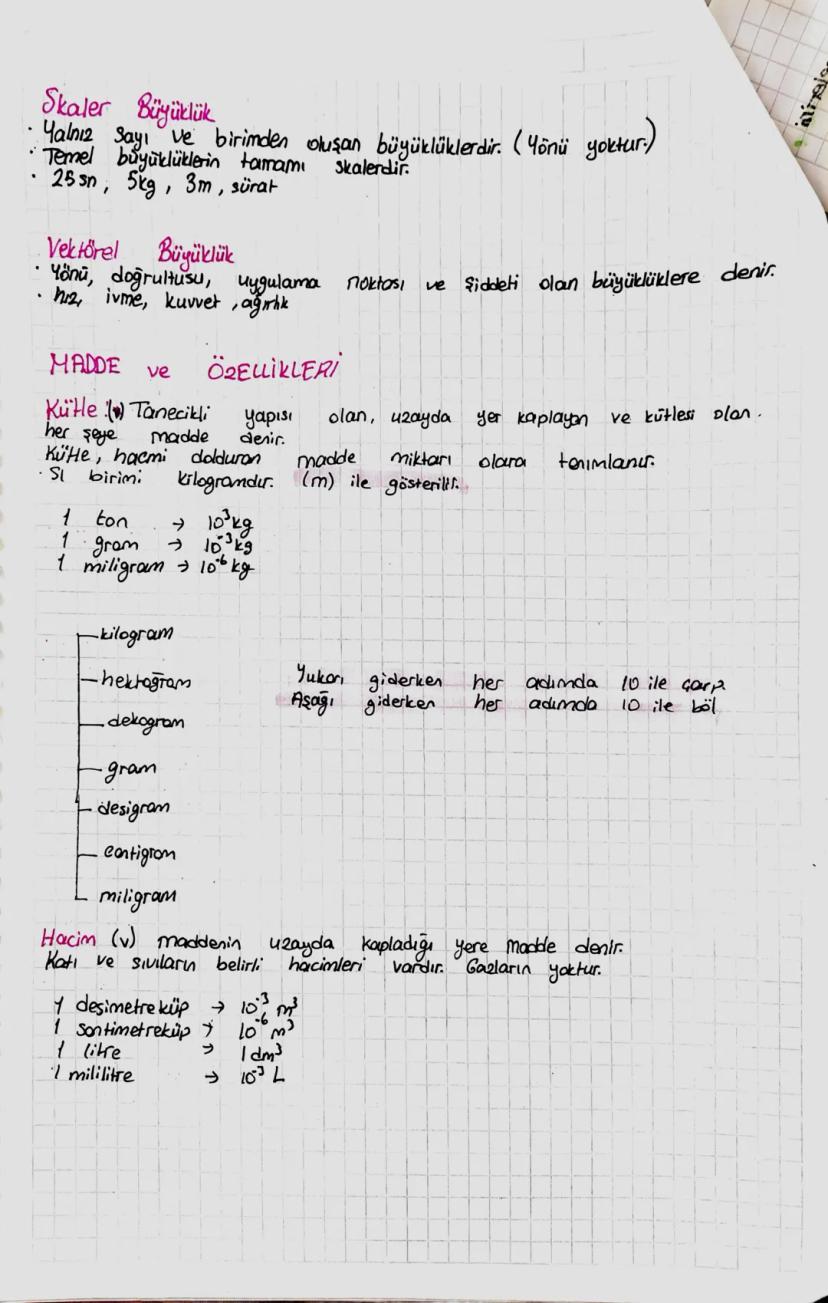 Skaler Büyüklük
· Yalnız sayı ve birimden oluşan büyüklüklerdir. (Yönü yoktur.)
· Temel büyüklüklerin tamamı skalerdir.
· 25 sn, 5kg, 3m, sürat
Vektörel Büyüklük
· Yönü, doğrultusu, uygulama noktası ve şiddeti olan büyüklüklere denir.
· hız, ivme, kuvvet, ağırlık
MADDE ve ÖZELLİKLERİ
Kütle: Tanecikli yapısı olan, uzayda yer kaplayan ve kütlesi olan.
her şeye madde denir.
Kütle, hacmi dolduran madde miktarı olara tanımlanır.
· SI birimi kilogramdır. (m) ile gösterilir.
1 ton → 10³kg
1 gram → 10⁻³kg
1 miligram → 10⁻⁶ kg
kilogram
hektogram
Yukarı giderken her adımda 10 ile çarp
Aşağı giderken her adımda 10 ile böl
dekogram
gram
desigram
centigram
miligram
Hacim (v) maddenin uzayda kapladığı yere madde denir.
Katı ve sıvıların belirli hacimleri vardır. Gazların yoktur.
1 desimetreküp → 10⁻³ m³
1 santimetreküp → 10⁻⁶ m³
1 litre → 1 dm³
1 mililitre → 10⁻³ L